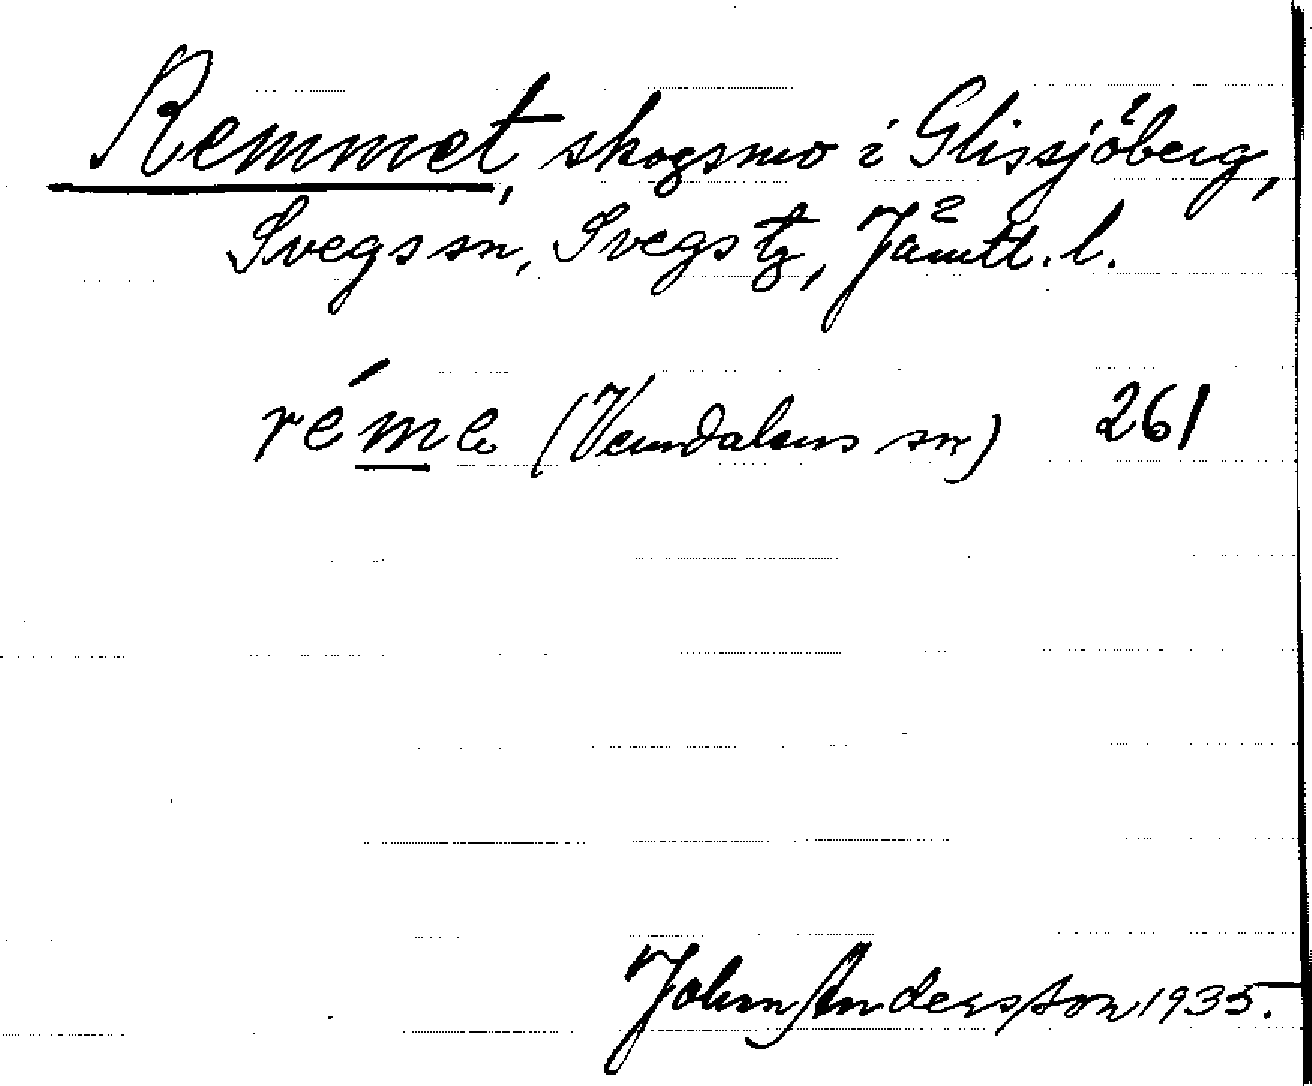 Remmet, skogsmo i Glissjöberg,
Svegs sn, Svegs tg, Jämtl. l.
réme (Vemdalens sn) 261
John Andersson 1935.